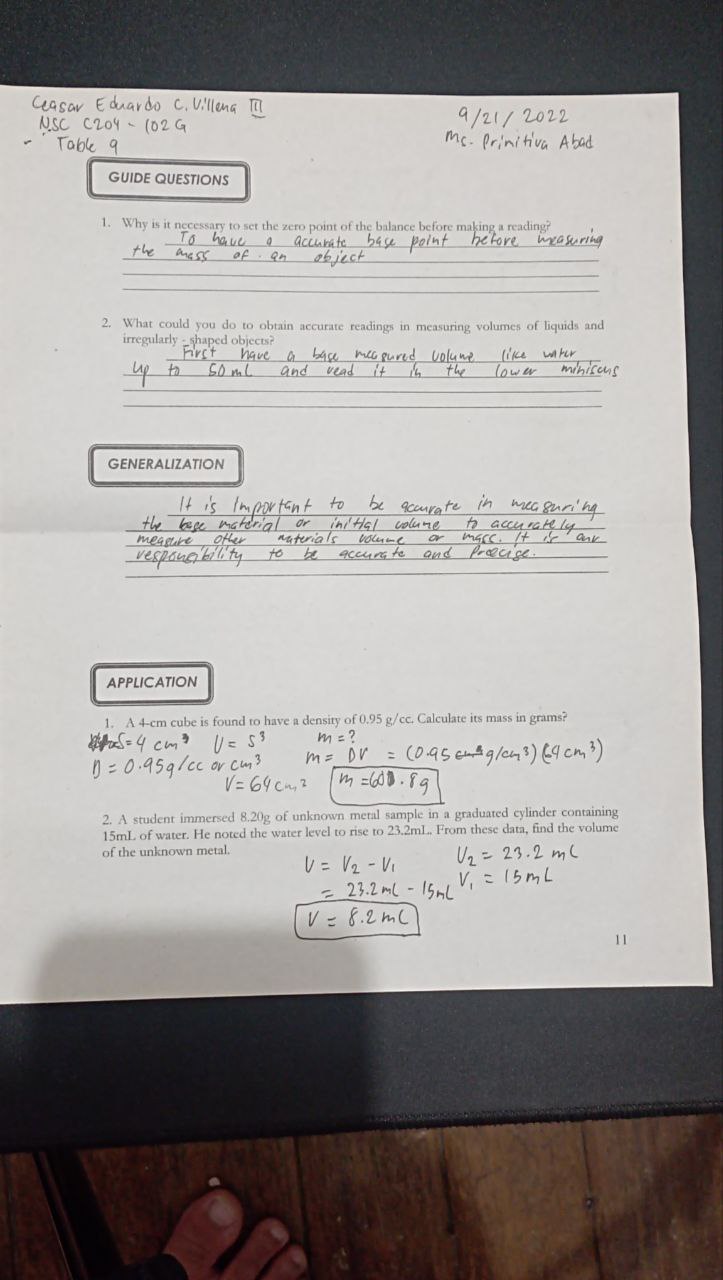 Ceasar Eduardo C. Villena III
NSC C204 - 102G
- Table 9
9/21/2022
Ms. Prinitiva Abad
GUIDE QUESTIONS
1. Why is it necessary to set the zero point of the balance before making a reading?
To have a accurate base point before measuring
the mass of an object
2. What could you do to obtain accurate readings in measuring volumes of liquids and
irregularly - shaped objects?
First have a base measured volume like water
up to 50 mL and read it in the lower miniscus
GENERALIZATION
It is Important to be accurate in measuring
the base material or initial volume to accurately
measure other materials volume or mass. It is our
responsibility to be accurate and Precise.
APPLICATION
1. A 4-cm cube is found to have a density of 0.95 g/cc. Calculate its mass in grams?
S = 4 cm³ V = S³ m = ?
D = 0.95g/cc or cm³ m = DV = (0.95 g/cm³)(64 cm³)
V = 64 cm³ m = 60.8g
2. A student immersed 8.20g of unknown metal sample in a graduated cylinder containing
15mL of water. He noted the water level to rise to 23.2mL. From these data, find the volume
of the unknown metal.
V = V₂ - V₁ V₂ = 23.2 mL
= 23.2mL - 15mL V₁ = 15mL
V = 8.2mL
11